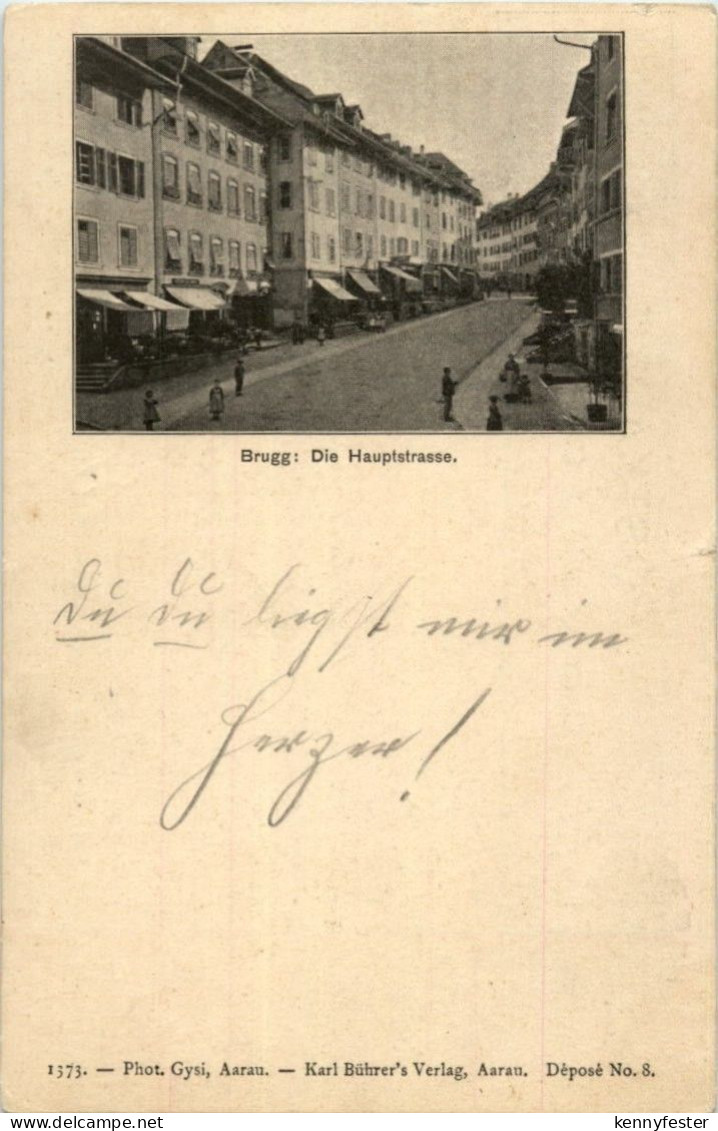 Brugg: Die Hauptstrasse.
Du Du liegst mir im
Herzen!
1373. — Phot. Gysi, Aarau. — Karl Bührer's Verlag, Aarau. Déposé No. 8.
kennyfester